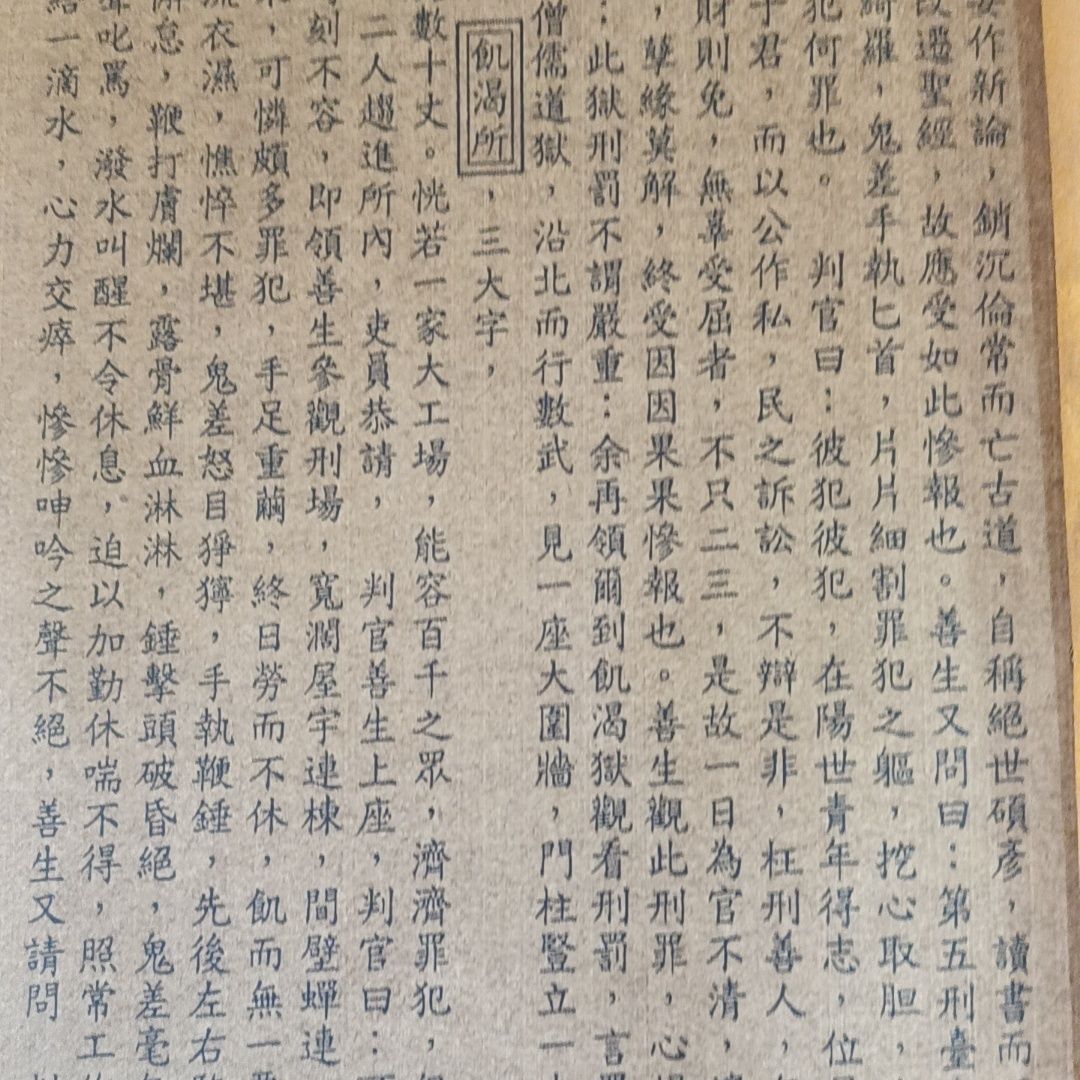 妄作新論，銷沉倫常而亡古道，自稱絕世碩彥，讀書而
改遷聖經，故應受如此慘報也。善生又問曰：第五刑臺
綺羅，鬼差手執匕首，片片細割罪犯之軀，挖心取胆，
犯何罪也。　判官曰：彼犯彼犯，在陽世青年得志，位
于君，而以公作私，民之訴訟，不辯是非，枉刑善人，
財則免，無辜受屈者，不只二三，是故一日為官不清，
，孽緣莫解，終受因因果果慘報也。善生觀此刑罪，心
：此獄刑罰不謂嚴重：余再領爾到飢渴獄觀看刑罰，言
僧儒道獄，沿北而行數武，見一座大圍牆，門柱豎立一
飢渴所，三大字，
數十丈。恍若一家大工場，能容百千之眾，濟濟罪犯，
二人趨進所內，吏員恭請，　判官善生上座，判官曰：
刻不容，即領善生參觀刑場，寬濶屋宇連棟，間壁蟬連
，可憐頗多罪犯，手足重繭，終日勞而不休，飢而無一
流衣濕，憔悴不堪，鬼差怒目猙獰，手執鞭錘，先後左右
懈怠，鞭打膚爛，露骨鮮血淋淋，錘擊頭破昏絕，鬼差毫
聲叱罵，潑水叫醒不令休息，迫以加勤休喘不得，照常工
給一滴水，心力交瘁，慘慘呻吟之聲不絕，善生又請問